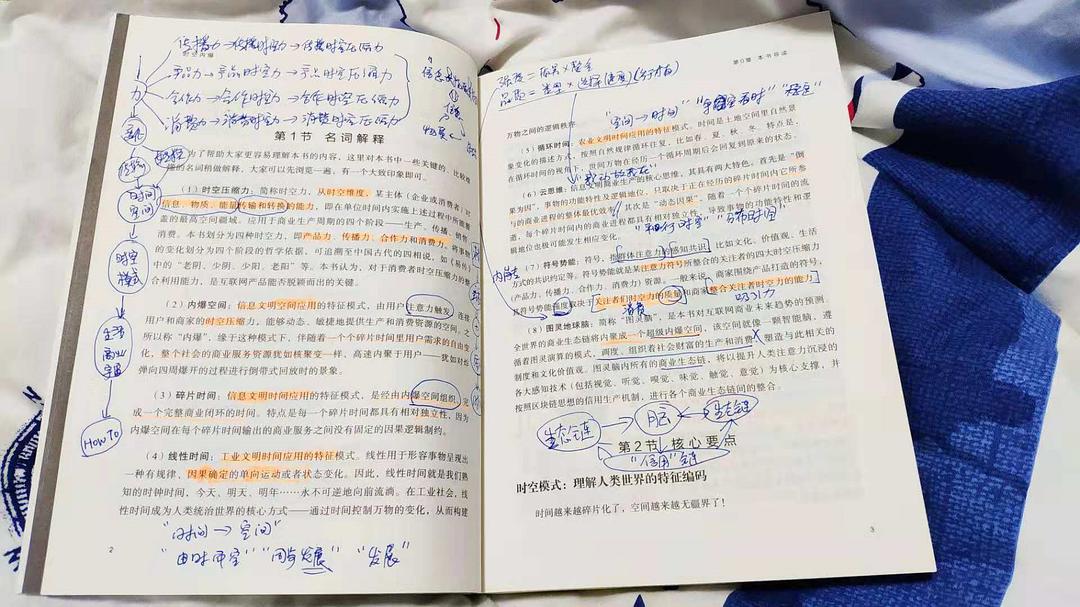 传播力→传播时空力→传播时空压缩力
时空内爆
产品力→产品时空力→产品时空压缩力
合作力→合作时空力→合作时空压缩力
消费力→消费时空力→消费时空压缩力
力
第1节 名词解释
为了帮助大家更容易理解本书的内容，这里对本书中一些关键的、比较难
的名词稍做解释，大家可以先浏览一遍，有一个大致印象即可。
（1）时空压缩力：简称时空力，从时空维度，某主体（企业或消费者）对
信息、物质、能量传输和转换的能力，即在单位时间内实施上述过程中所能覆
盖的最高空间疆域。应用于商业生产周期的四个阶段——生产、传播、销售、
消费。本书划分为四种时空力，即产品力、传播力、合作力和消费力。将事物
的变化划分为四个阶段的哲学依据，可追溯至中国古代的四相说，如《易传》
中的“老阴、少阴、少阳、老阳”等。本书认为，对于消费者时空压缩力的整
合利用能力，是互联网产品能否脱颖而出的关键。
（2）内爆空间：信息文明空间应用的特征模式，由用户注意力触发，连接
用户和商家的时空压缩力，能够动态、敏捷地提供生产和消费资源的空间。之
所以称“内爆”，缘于这种模式下，伴随着一个个碎片时间里用户需求的自由变
化，整个社会的商业服务资源犹如核聚变一样，高速内聚于用户——犹如对长
弹向四周爆开的过程进行倒带式回放时的景象。
（3）碎片时间：信息文明时间应用的特征模式，是经由内爆空间组织，完
成一个完整商业闭环的时间。特点是每一个碎片时间都具有相对独立性，因为
内爆空间在每个碎片时间输出的商业服务之间没有固定的因果逻辑制约。
（4）线性时间：工业文明时间应用的特征模式。线性用于形容事物呈现出
一种有规律、因果确定的单向运动或者状态变化。因此，线性时间就是我们熟
知的时钟时间，今天、明天、明年……永不可逆地向前流淌。在工业社会，线
性时间成为人类统治世界的核心方式——通过时间控制万物的变化，从而构建
时间
空间
时空
模式
生活
商业
宇宙
How To
“时间→空间”
“发展”
2
第0章 本书导读
“空间→时间”
万物之间的逻辑秩序。
（5）循环时间：农业文明时间应用的特征模式。时间是土地空间里自然景
象变化的描述方式，按照自然规律循环往复，比如春、夏、秋、冬。特点是，
在循环时间的视角下，世间万物在经历一个循环周期后会回到原来的状态。
（6）云思维：信息文明商业生产的核心思维，其具有两大特色。首先是“倒
果为因”，事物的功能特性及逻辑地位，只取决于正在经历的碎片时间内它所参
与的商业进程的整体最优效率；其次是“动态因果”，随着一个个碎片时间的流
逝，每个碎片时间内的商业进程都具有相对独立性，导致事物的功能特性和逻
辑地位也极可能发生相应变化。
“平行时空”“分布时间”
（7）符号势能：符号，指群体注意力的感知共识，比如文化、价值观、生活
方式的共识约定等。符号势能就是某注意力符号所整合的关注者的四大时空压缩力
（产品力、传播力、合作力、消费力）资源。一般来说，商家围绕产品打造的符号，
其符号势能强度取决于关注者们时空力的质量和商家整合关注者时空力的能力。
消费
吸引力
（8）图灵地球脑：简称“图灵脑”，是本书对互联网商业未来趋势的预测。
全世界的商业生态链将内聚成一个超级内爆空间，该空间就像一颗智能脑，遵
循着图灵演算的模式，调度、组织着社会财富的生产和消费，塑造与此相关的
制度和文化价值观。图灵脑内所有的商业生态链，将以提升人类注意力沉浸的
各大感知技术（包括视觉、听觉、嗅觉、味觉、触觉、意觉）为核心支撑，并
按照区块链思想的信用生产机制，进行各个商业生态链间的整合。
生态链 脑 生态链
第2节 核心要点
“信用”链
时空模式：理解人类世界的特征编码
时间越来越碎片化了，空间越来越无疆界了！
3